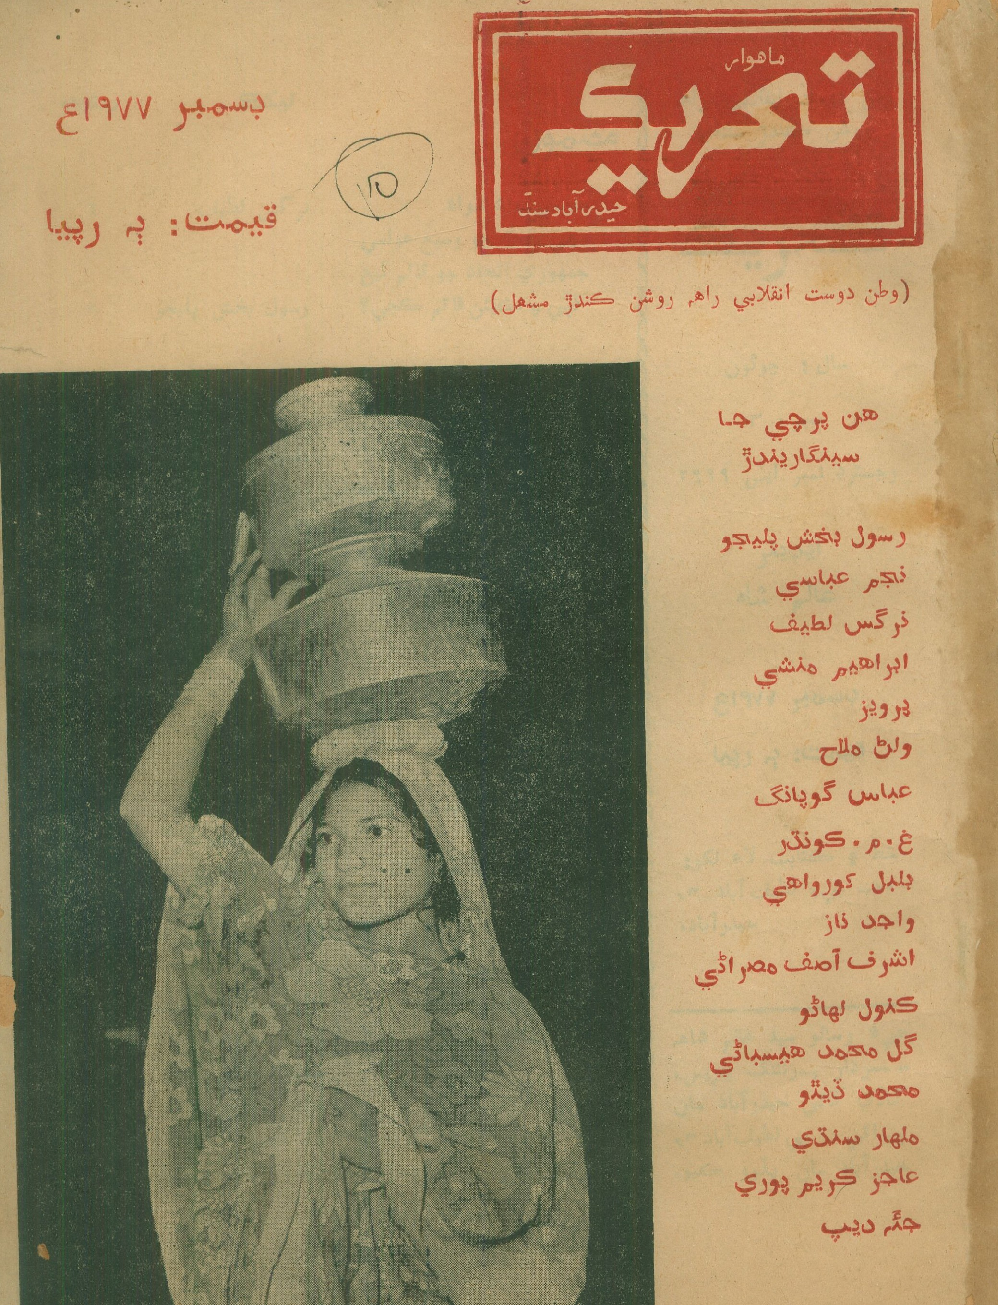 ماهوار
تحريڪ
حيدرآباد سنڌ
ڊسمبر ۱۹۷۷ع
قيمت: ٻه رپيا
(وطن دوست انقلابي راهه روشن ڪندڙ مشعل)
هن پرچي جا
سينگاريندڙ
رسول بخش پليجو
نجم عباسي
نرگس لطيف
ابراهيم منشي
پرويز
ولڻ ملاح
عباس گوپانگ
غ . م . ڪونڌر
بلبل کورواهي
واجد ناز
اشرف آصف مصراڻي
ڪنول لهاڻو
گل محمد هيسباڻي
محمد ڏيٿو
ملهار سنڌي
عاجز ڪريم پوري
جئه ديپ